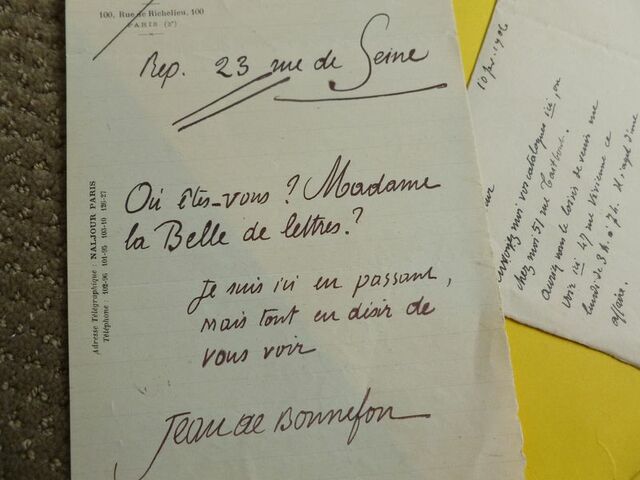 100, Rue de Richelieu, 100
PARIS (2e)
Rep. 23 rue de Seine
Adresse Télégraphique : NALJOUR PARIS
Téléphone : 102-96 101-95 103-10 125-27
Où êtes-vous ? Madame
la Belle de lettres ?
Je suis ici en passant,
mais tout en désir de
vous voir
Jean de Bonnefon
envoyez moi vos catalogues ici, ou
chez moi 51 rue
aurez vous le loisir de venir me
voir ici 47 rue Vivienne ce
lundi de 3 h. à 7 h. Il s'agit d'une
affaire.